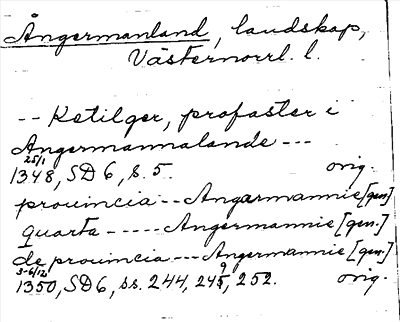 Ångermanland, landskap,
Västernorrl. l.
-- Ketilger, profaster i
Angermannalande ---
25/1
1348, SD 6, s. 5. orig.
prouincia -- Angarmannie [gen]
quarta ----- Angermannie [gen.]
de prouincia --- Angermannie [gen]
3-6/12 9
1350, SD 6, ss. 244, 245, 252. orig.